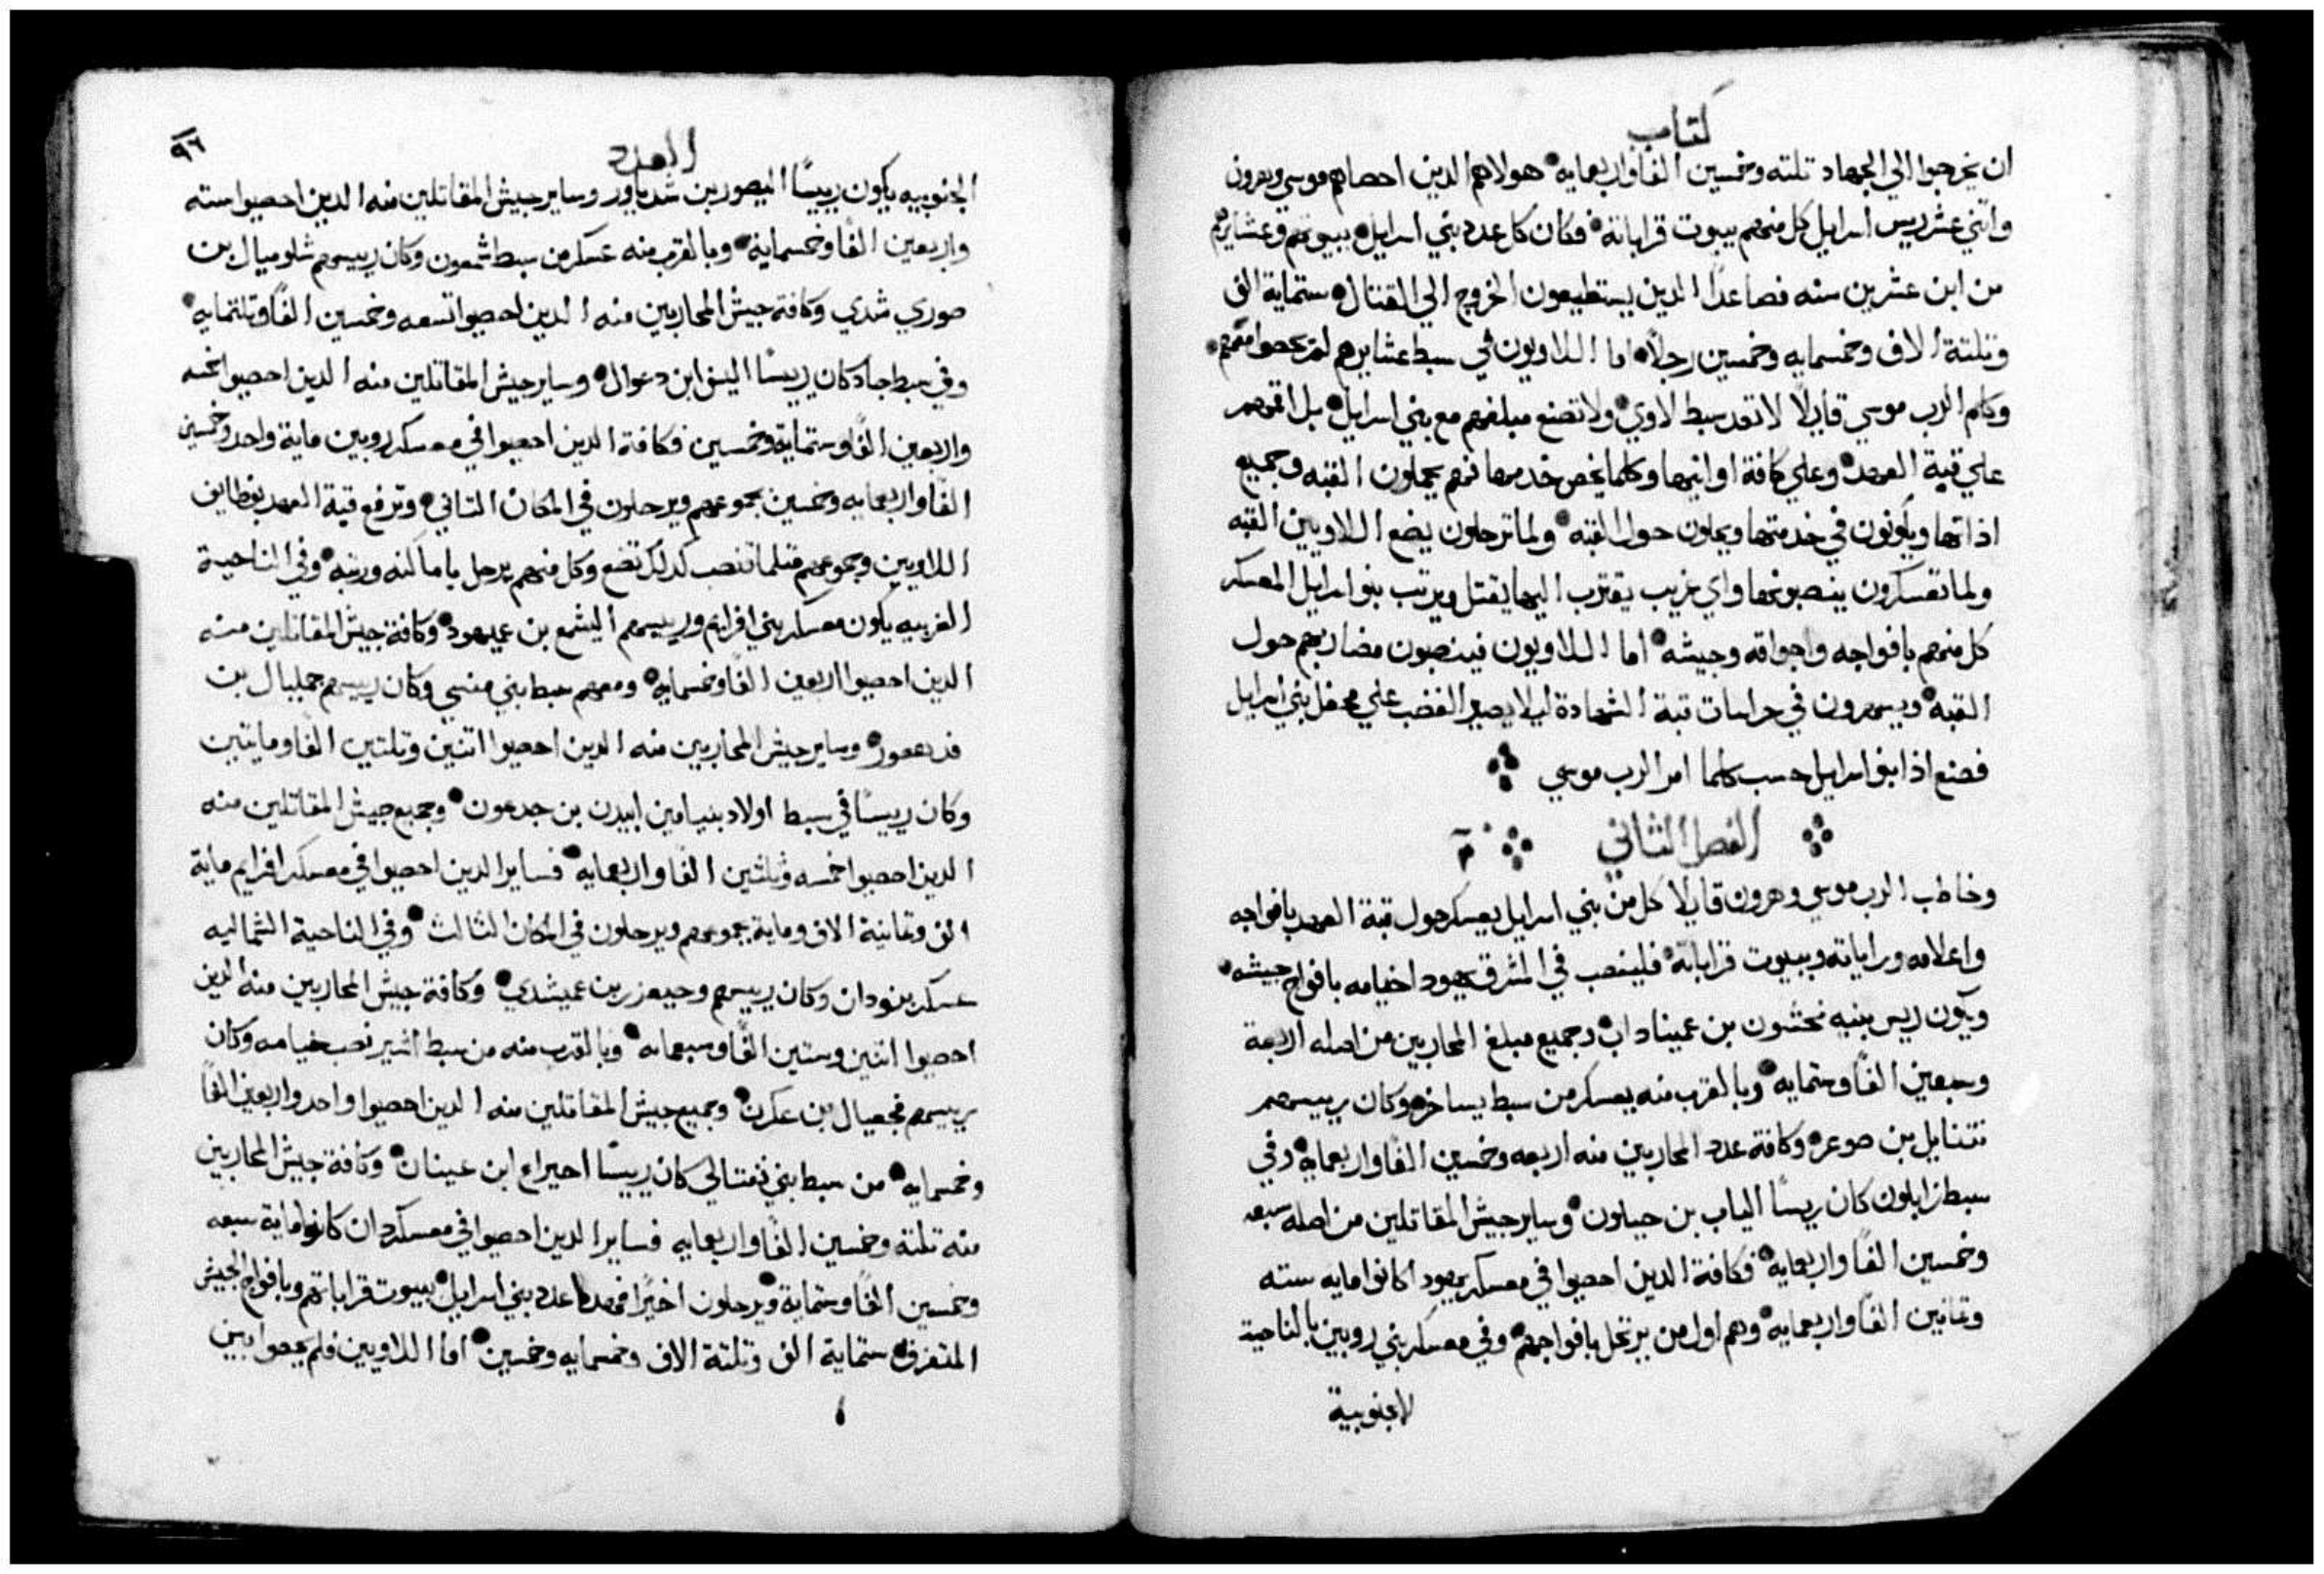 كتاب
ان يخرجوا الي الجهاد تلته وخمسين الفا واربعمايه هولاهم الدين احصاهم موسي وهرون
واتني عشر ريس اسرايل كل منهم ببيوت قراباته فكان كل عدد بني اسرايل ببيوتهم وعشايرهم
من ابن عشرين سنه فصاعدًا الدين يستطيعون الخروج الي القتال ستماية الف
وتلتة الاف وخمسمايه وخمسين رجلاً اما اللاويون في سبط عشايرهم لم يحصوا معهم
وكلم الرب موسي قايلاً لا تعد سبط لاوي ولا تضع مبلغهم مع بني اسرايل بل اقمهم
علي قبة العهد وعلي كافة اوانيها وكلما يخص خدمتها فهم يحملون القبه وجميع
اداتها ويكونون في خدمتها ويحلون حول القبه ولما ترحلون يضع اللاويين القبه
ولما تعسكرون ينصبونها واي غريب يقترب اليها يقتل ويرتب بنو اسرايل المعسكر
كل منهم بافواجه واجواقه وجيشه اما اللاويون فينصبون مضاربهم حول
القبه ويسهرون في حراسات قبة الشهادة ليلا يصير الغضب علي محفل بني اسرايل
فصنع اذا بنو اسرايل حسب كلما امر الرب موسي
الفصل التاني ٢
وخاطب الرب موسي وهرون قايلا كل من بني اسرايل يعسكر حول قبة العهد بافواجه
واعلامه وراياته وببيوت قراباته فلينصب في المشرق يهودا خيامه بافواج جيشه
ويكون ريس بنيه نحشون بن عميناداب وجميع مبلغ المحاربين من اصله اربعة
وسبعين الفًا وستمايه وبالقرب منه يعسكر من سبط يساخر وكان رييسهم
نتنايل بن صوعر وكافة عدد المحاربين منه اربعه وخمسين الفًا واربعمايه وفي
سبط زابلون كان ريسًا الياب بن حيلون وساير جيش المقاتلين من اصله سبعه
وخمسين الفًا واربعمايه فكافة الدين احصيوا في معسكر يهودا كانوا مايه سته
وتمانين الفًا واربعمايه وهم اول من يرتحل بافواجهم وفي معسكر بني روبين بالناحية
الجنوبية
العدد
٩٦
الجنوبيه يكون رييسًا اليصور بن شدياور وساير جيش المقاتلين منه الدين احصيوا سته
واربعين الفًا وخمسمايه وبالقرب منه عسكر من سبط شمعون وكان رييسهم شلوميال بن
صوري شدي وكافة جيش المحاربين منه الدين احصيوا تسعه وخمسين الفًا وتلتمايه
وفي سبط جاد كان رييسًا اليسف ابن دعوال وساير جيش المقاتلين منه الدين احصيوا خمسه
واربعين الفًا وستماية وخمسين فكافة الدين احصيوا في معسكر روبين ماية واحد وخمسين
الفًا واربعمايه وخمسين بجموعهم ويرحلون في المكان التاني وترفع قبة العهد بوظايف
اللاويين وبجموعهم متلما تنصب كدلك تضع وكل منهم يرحل باماكنه ورتبه وفي الناحية
الغربيه يكون معسكر بني افرايم ورييسهم اليشمع بن عميهود وكافة جيش المقاتلين منه
الدين احصيوا اربعين الفًا وخمسمايه ومعهم سبط بني منسي وكان رييسهم جمليال بن
فدهصور وساير جيش المحاربين منه الدين احصيوا اتنين وتلتين الفًا ومايتين
وكان رييسًا في سبط اولاد بنيامين ابيدن بن جدعون وجميع جيش المقاتلين منه
الدين احصيوا خمسه وثلثين الفًا واربعمايه فساير الدين احصيوا في معسكر افرايم ماية
الف وتمانية الاف وماية بجموعهم ويرحلون في المكان التالت وفي الناحية الشماليه
عسكر بنو دان وكان رييسهم وحيعزر بن عميشدي وكافة جيش المحاربين منه الدين
احصيوا اتنين وستين الفًا وسبعمايه وبالقرب منه من سبط اشير نصب خيامه وكان
رييسهم فجعيال بن عكرن وجميع جيش المقاتلين منه الدين احصيوا واحد واربعين الفًا
وخمسمايه من سبط بني نفتالي كان رييسًا احيراع ابن عينان وكافة جيش المحاربين
منه تلتة وخمسين الفًا واربعمايه فساير الدين احصيوا في معسكر دان كانوا ماية سبعه
وخمسين الفًا وستماية ويرحلون اخيرًا فهدا عدد بني اسرايل ببيوت قراباتهم وبافواج الجيش
المتفرق ستماية الف وتلتة الاف وخمسمايه وخمسين اما اللاويين فلم يحصوا بين